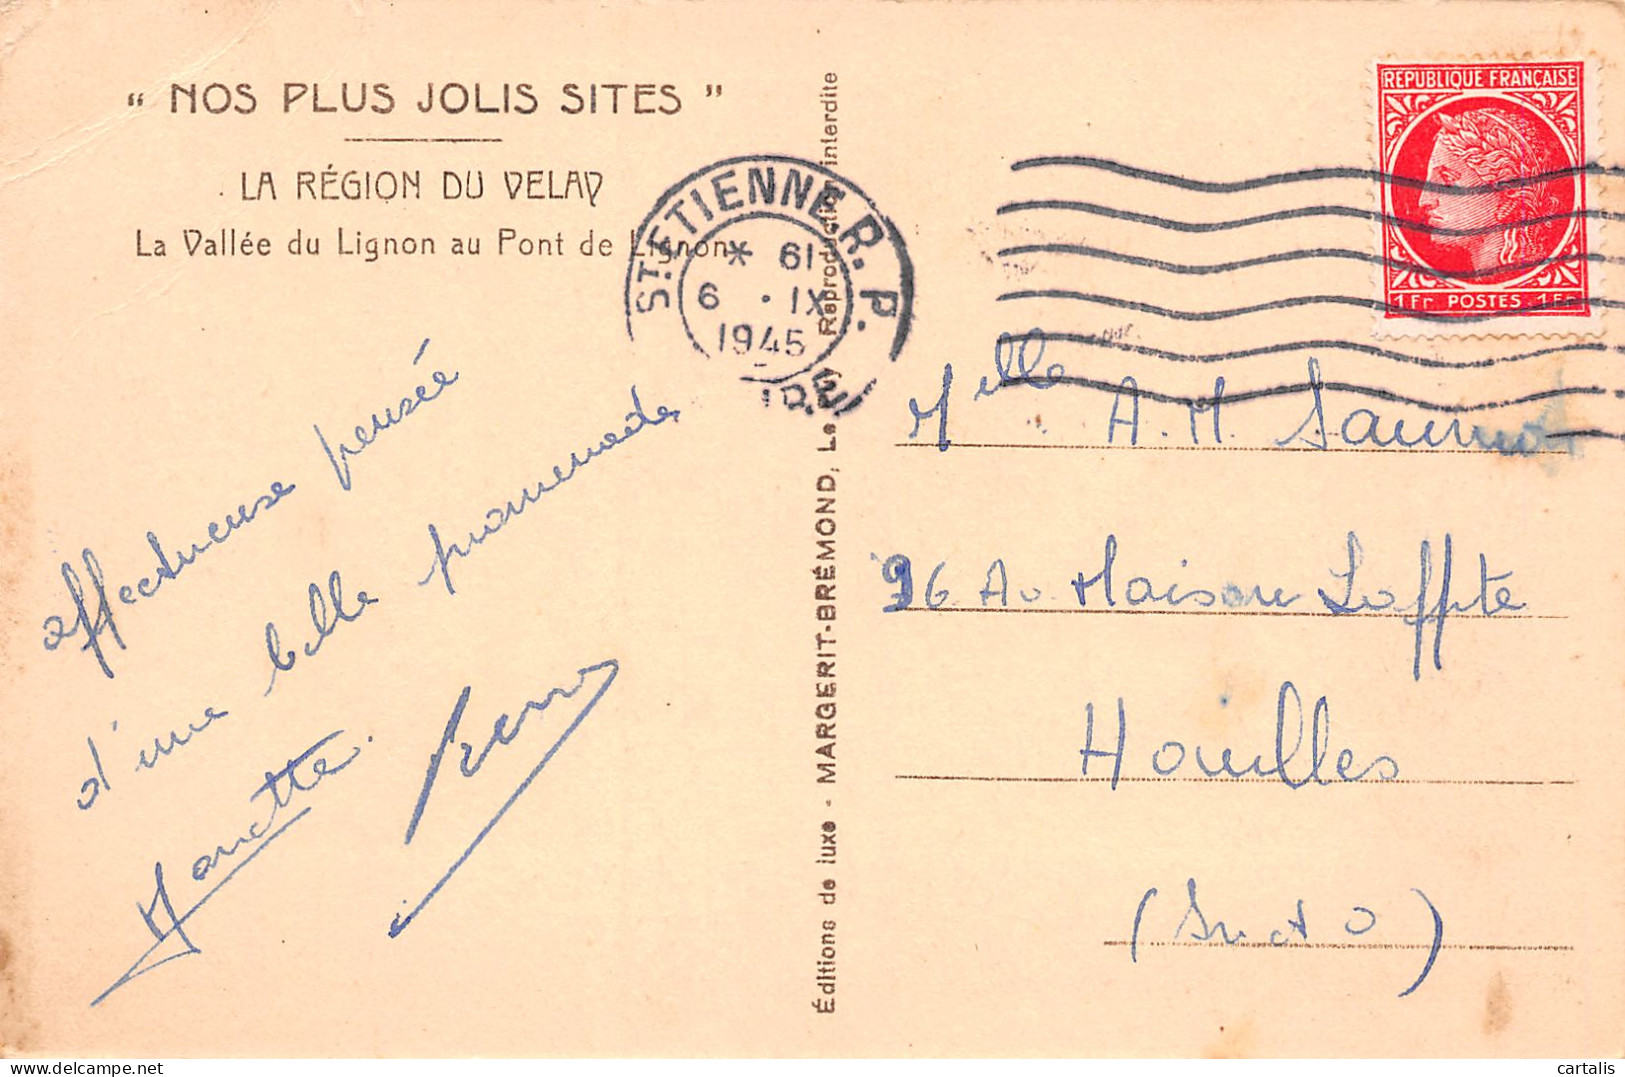 " NOS PLUS JOLIS SITES "
LA RÉGION DU VELAY
La Vallée du Lignon au Pont de Lignon
affectueuse pensée
d'une belle promenade
Éditions de luxe - MARGERIT-BRÉMOND, Le Puy Reproduction interdite
ST. ETIENNE R. P.
* 19
6 . IX
1945
LOIRE
REPUBLIQUE FRANÇAISE
1 Fr POSTES 1 Fr
Melle A. M.
96 Av Maison Laffite
Houilles
(S et O)
cartalis